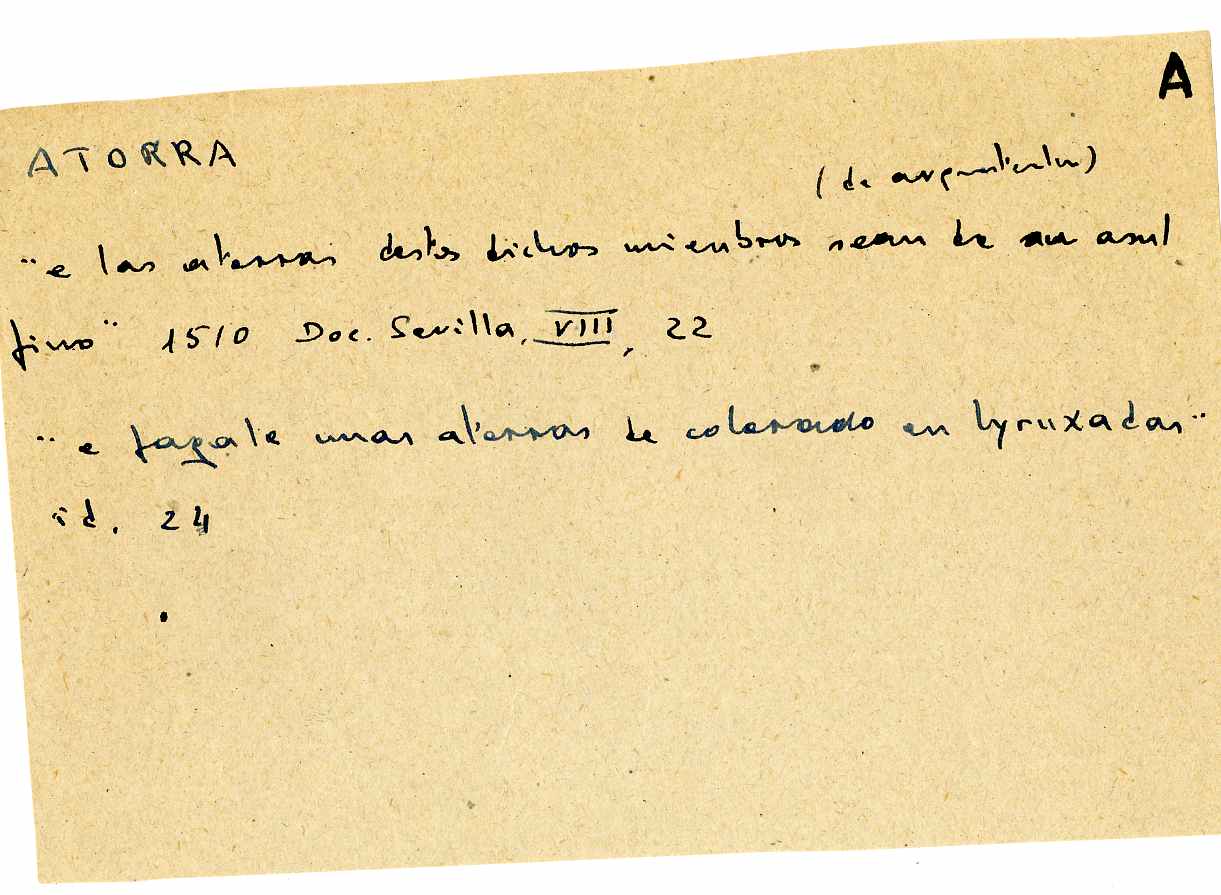 A
ATORRA
(de arquitectura)
"e las atorras destos dichos mienbros sean de un asul
fino" 1510 Doc. Sevilla, VIII, 22
"e fagale unas atorras de colorado en
id. 24